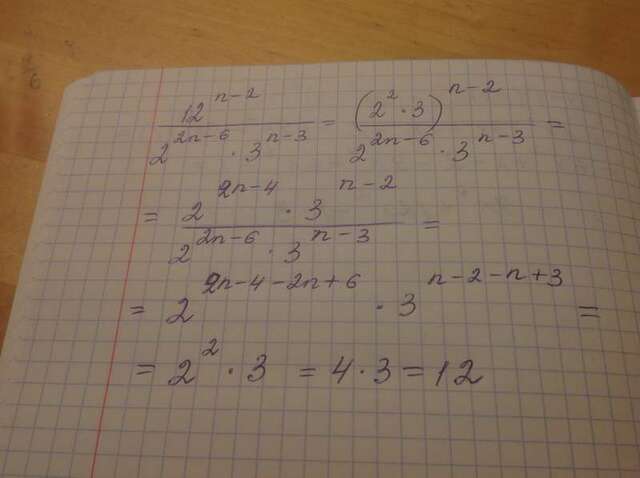 12^{n-2} / (2^{2n-6} · 3^{n-3}) = (2^2 · 3)^{n-2} / (2^{2n-6} · 3^{n-3}) =
= (2^{2n-4} · 3^{n-2}) / (2^{2n-6} · 3^{n-3}) =
= 2^{2n-4-2n+6} · 3^{n-2-n+3} =
= 2^2 · 3 = 4 · 3 = 12